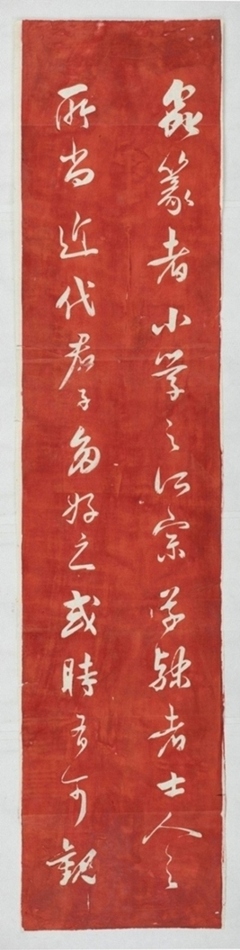 蟲篆者小學之所宗草隸者士人之
所尚近代君子多好之或時有可觀